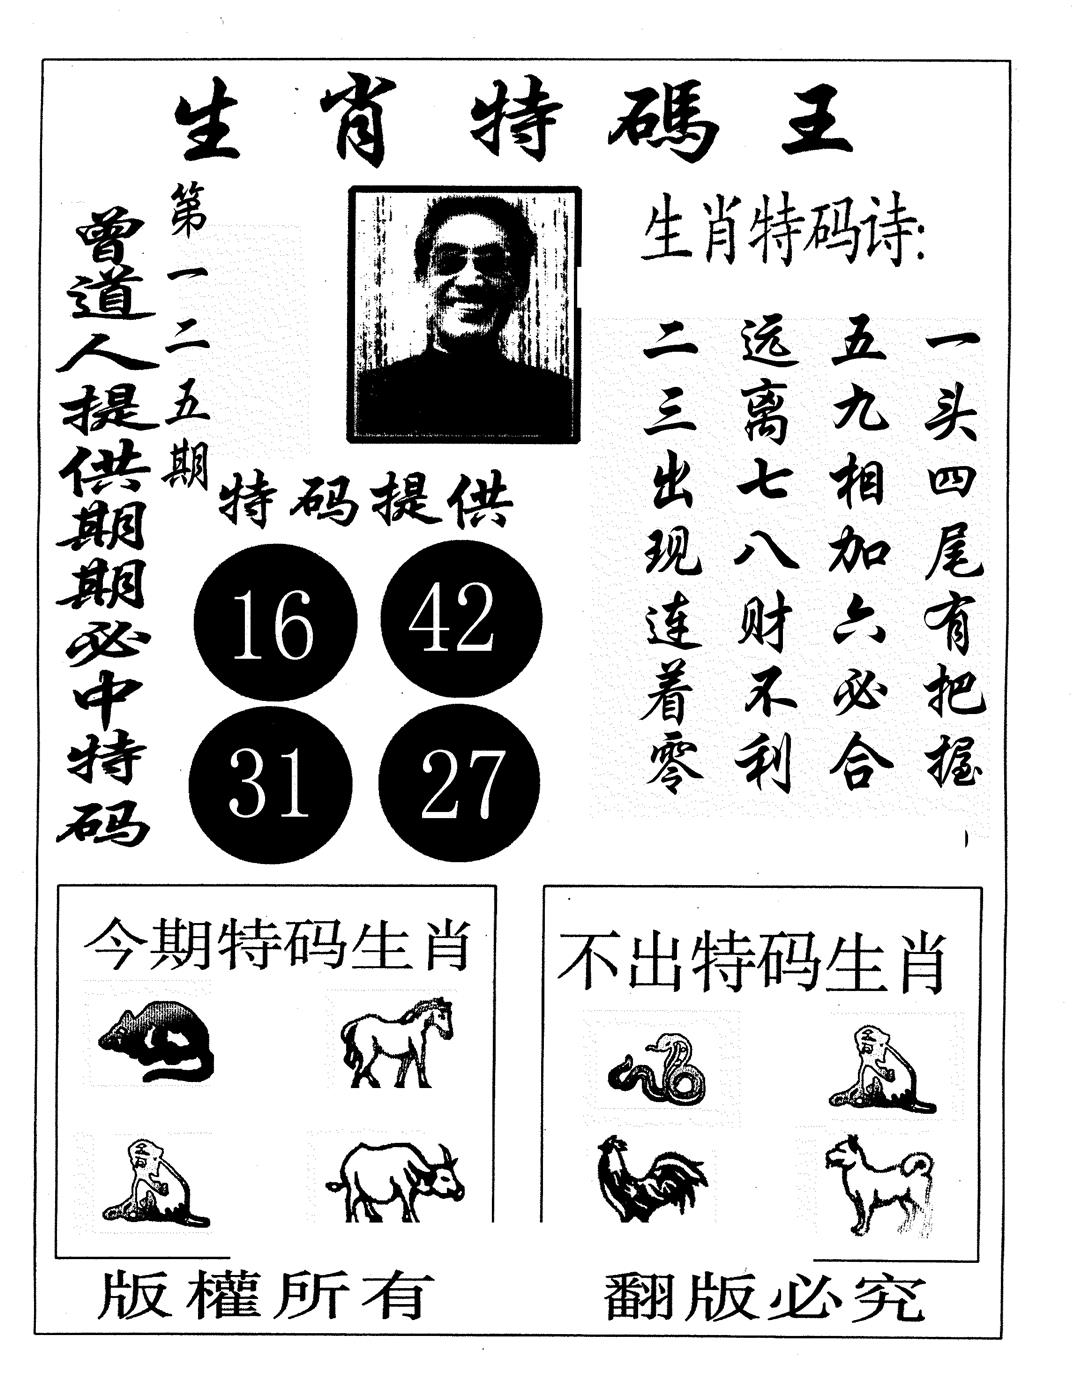 生肖特碼王
曾道人提供期期必中特码
第一二五期
生肖特码诗:
一头四尾有把握
五九相加六必合
远离七八财不利
二三出现连着零
特码提供
16 42
31 27
今期特码生肖
不出特码生肖
版權所有
翻版必究